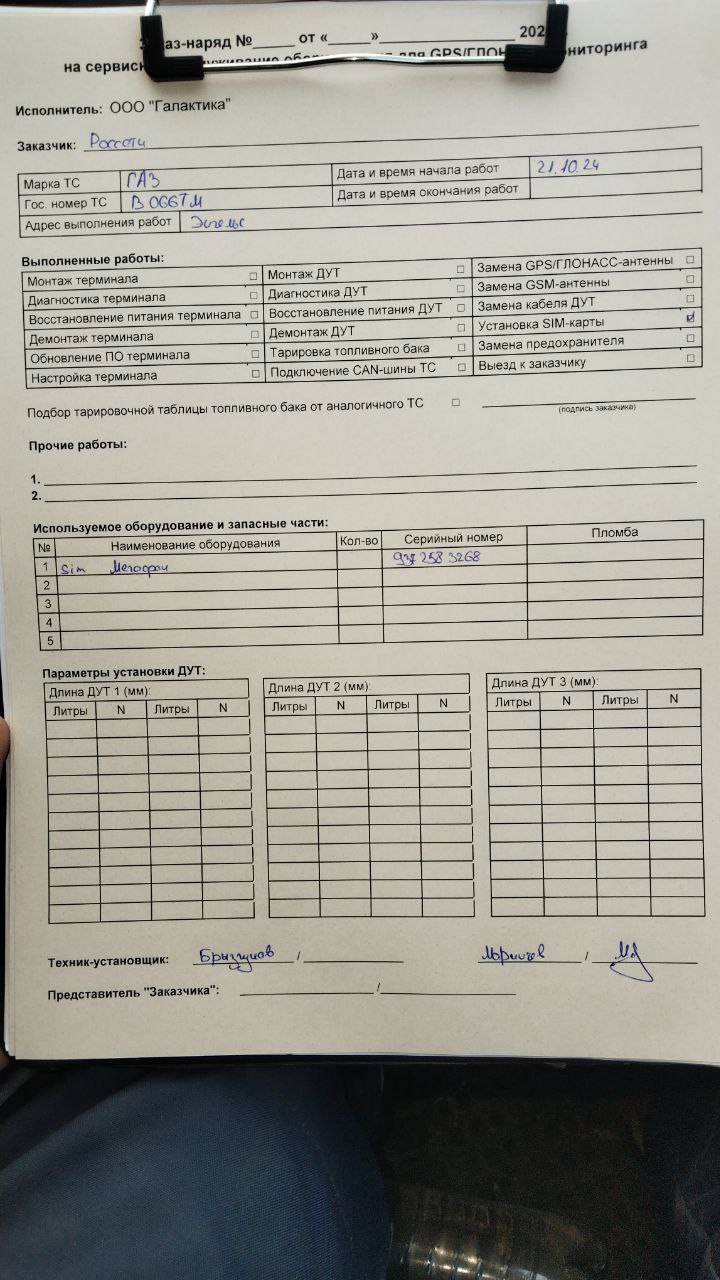 аз-наряд №_____ от «_____»________________ 202
на сервисн служивание обору для GPS/ГЛОН ониторинга
Исполнитель: ООО "Галактика"
Заказчик: Россети
Марка ТС ГАЗ Дата и время начала работ 21.10.24
Гос. номер ТС В 066 ТМ Дата и время окончания работ
Адрес выполнения работ
Выполненные работы:
Монтаж терминала □ Монтаж ДУТ □ Замена GPS/ГЛОНАСС-антенны □
Диагностика терминала □ Диагностика ДУТ □ Замена GSM-антенны □
Восстановление питания терминала □ Восстановление питания ДУТ □ Замена кабеля ДУТ □
Демонтаж терминала □ Демонтаж ДУТ □ Установка SIM-карты ☑
Обновление ПО терминала □ Тарировка топливного бака □ Замена предохранителя □
Настройка терминала □ Подключение CAN-шины ТС □ Выезд к заказчику □
Подбор тарировочной таблицы топливного бака от аналогичного ТС □
(подпись заказчика)
Прочие работы:
1.
2.
Используемое оборудование и запасные части:
№ Наименование оборудования Кол-во Серийный номер Пломба
1 Sim Мегафон 937 258 3268
2
3
4
5
Параметры установки ДУТ:
Длина ДУТ 1 (мм): Длина ДУТ 2 (мм): Длина ДУТ 3 (мм):
Литры N Литры N Литры N Литры N Литры N Литры N
Техник-установщик: / /
Представитель "Заказчика": /